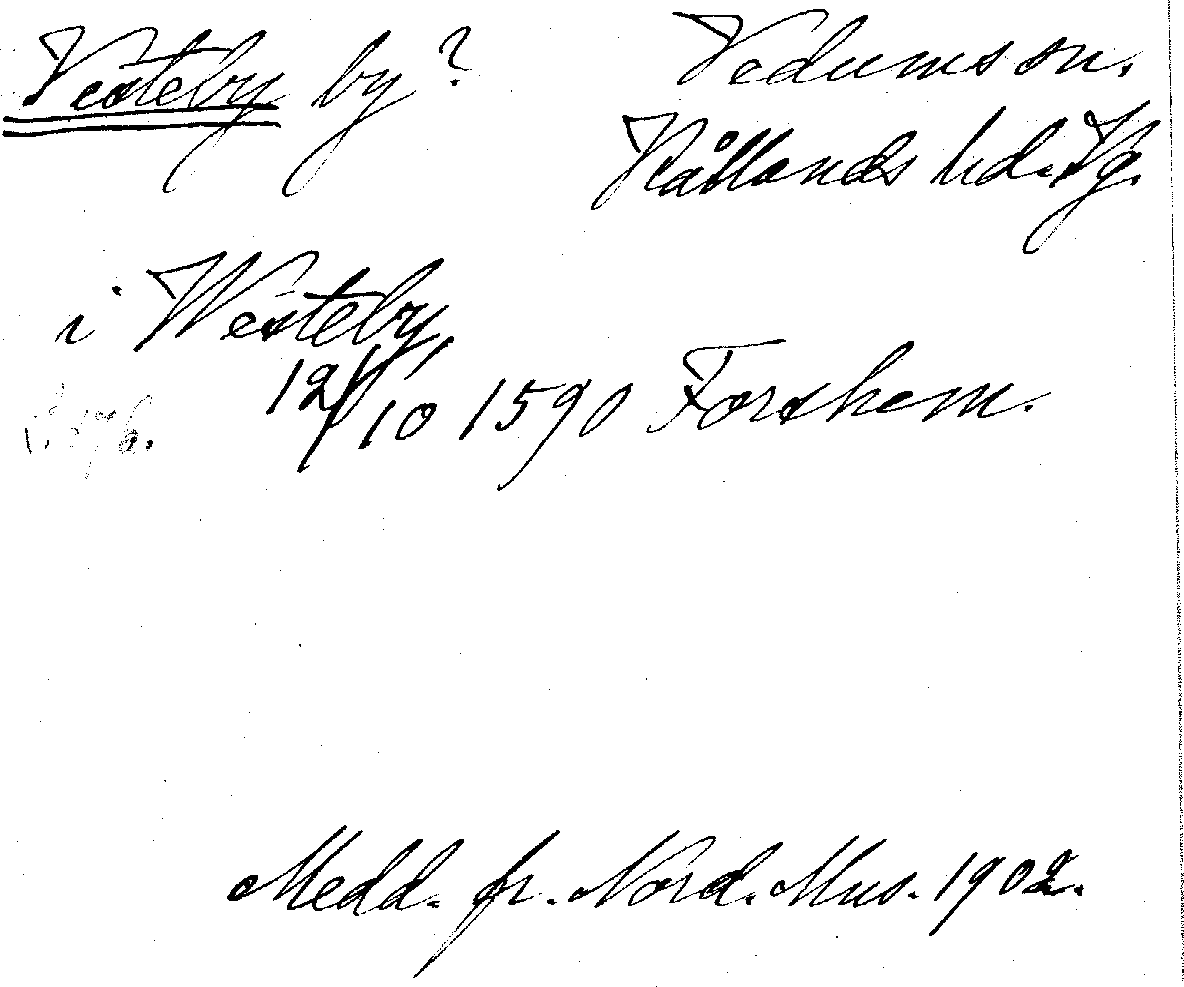 Vesteby by?
Vedums sn.
Kållands hd. Vg.
i Westeby
12/10 1590 Forshem.
Medd. fr. Nord. Mus. 1902.